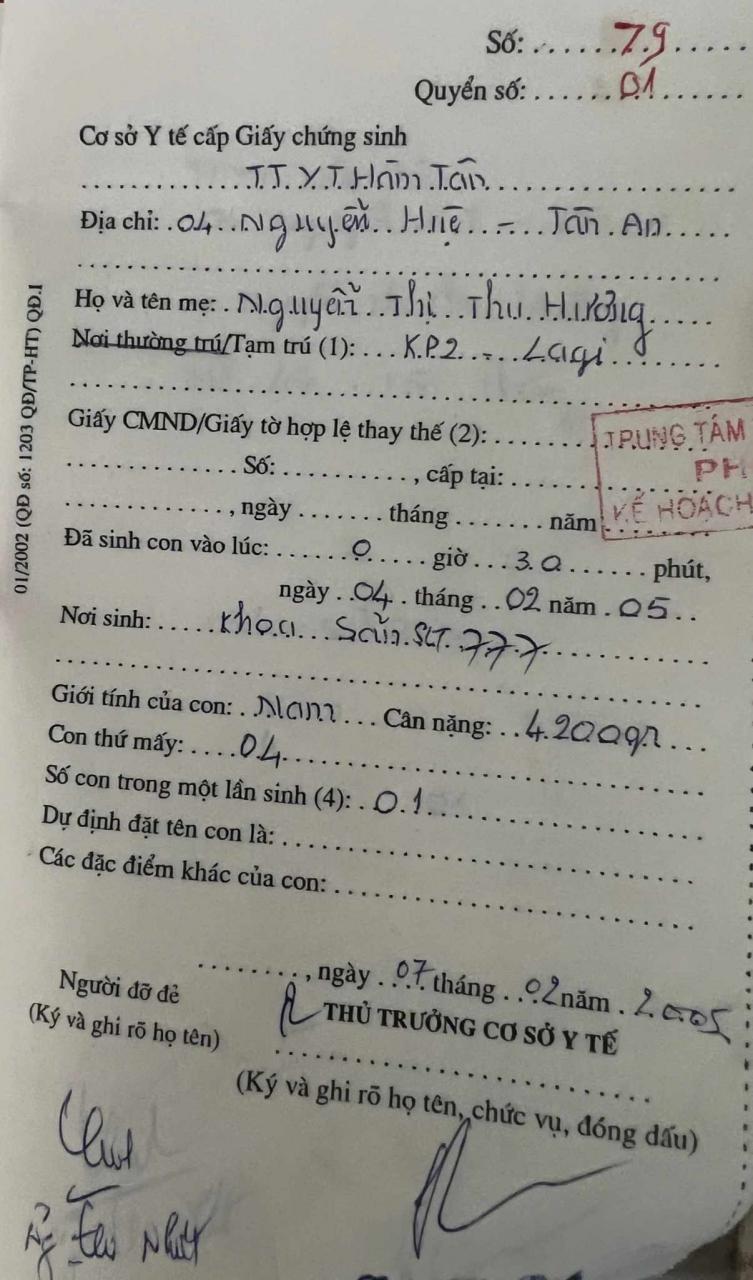 Số: ......79.....
Quyển số: ......01.......
Cơ sở Y tế cấp Giấy chứng sinh
T.T.Y.T. Hàm Tân
Địa chỉ: 04 Nguyễn Huệ - Tân An
Họ và tên mẹ: Nguyễn Thị Thu Hương
Nơi thường trú/Tạm trú (1): K.P.2 - Lagi
Giấy CMND/Giấy tờ hợp lệ thay thế (2):
Số: , cấp tại:
, ngày ....... tháng ....... năm
TRUNG TÂM
PH
KẾ HOẠCH
Đã sinh con vào lúc: 0 giờ 30 phút,
ngày 04 tháng 02 năm 05
Nơi sinh: Khoa Sản. 777
Giới tính của con: Nam Cân nặng: 4.200gr
Con thứ mấy: 04
Số con trong một lần sinh (4): 01
Dự định đặt tên con là:
Các đặc điểm khác của con:
, ngày 07 tháng 02 năm 2005
Người đỡ đẻ
(Ký và ghi rõ họ tên)
THỦ TRƯỞNG CƠ SỞ Y TẾ
(Ký và ghi rõ họ tên, chức vụ, đóng dấu)
01/2002 (QĐ số: 1203 QĐ/TP-HT) QĐ.I